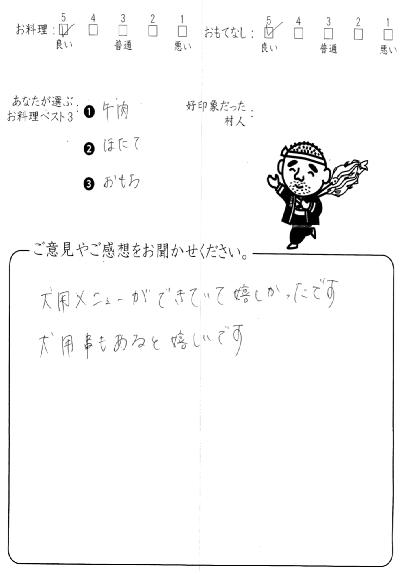 お料理： 5 4 3 2 1
良い 普通 悪い
おもてなし： 5 4 3 2 1
良い 普通 悪い
あなたが選ぶ
お料理ベスト3：
❶ 牛肉
❷ ほたて
❸ おもち
好印象だった
村人：
ご意見やご感想をお聞かせください。
犬用メニューができていて嬉しかったです
犬用串もあると嬉しいです